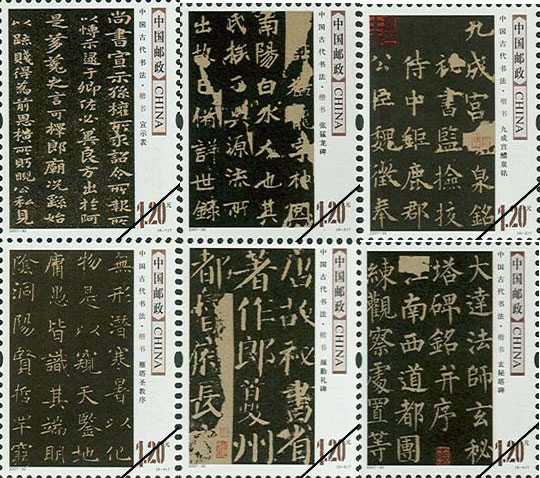 中国邮政 CHINA
中国古代书法·楷书 宣示表
尚書宣示孫權所求詔令所報所
以博示逮于卿佐必冀良方出於阿
是芻蕘之言可擇郎廟況繇始
以疏賤得為前恩橫所眄睨公私見
1.20元
2007-30
(6-1)T
中国邮政 CHINA
中国古代书法·楷书 张猛龙碑
神冏
南陽白水人也其
氏族分興源流所
出故已備詳世錄
1.20元
2007-30
(6-2)T
中国邮政 CHINA
中国古代书法·楷书 九成宫醴泉铭
九成宮泉銘
秘書監撿挍
侍中鉅鹿郡
公臣魏徵奉
1.20元
2007-30
(6-3)T
中国邮政 CHINA
中国古代书法·楷书 雁塔圣教序
無形潛寒暑以化
物是以窺天鑒地
庸愚皆識其端明
陰洞陽賢哲罕窮
1.20元
2007-30
(6-4)T
中国邮政 CHINA
中国古代书法·楷书 颜勤礼碑
唐故秘書省
著作郎夔州
都督府長
1.20元
2007-30
(6-5)T
中国邮政 CHINA
中国古代书法·楷书 玄秘塔碑
大達法師玄秘
塔碑銘并序
江南西道都團
練觀察處置等
1.20元
2007-30
(6-6)T